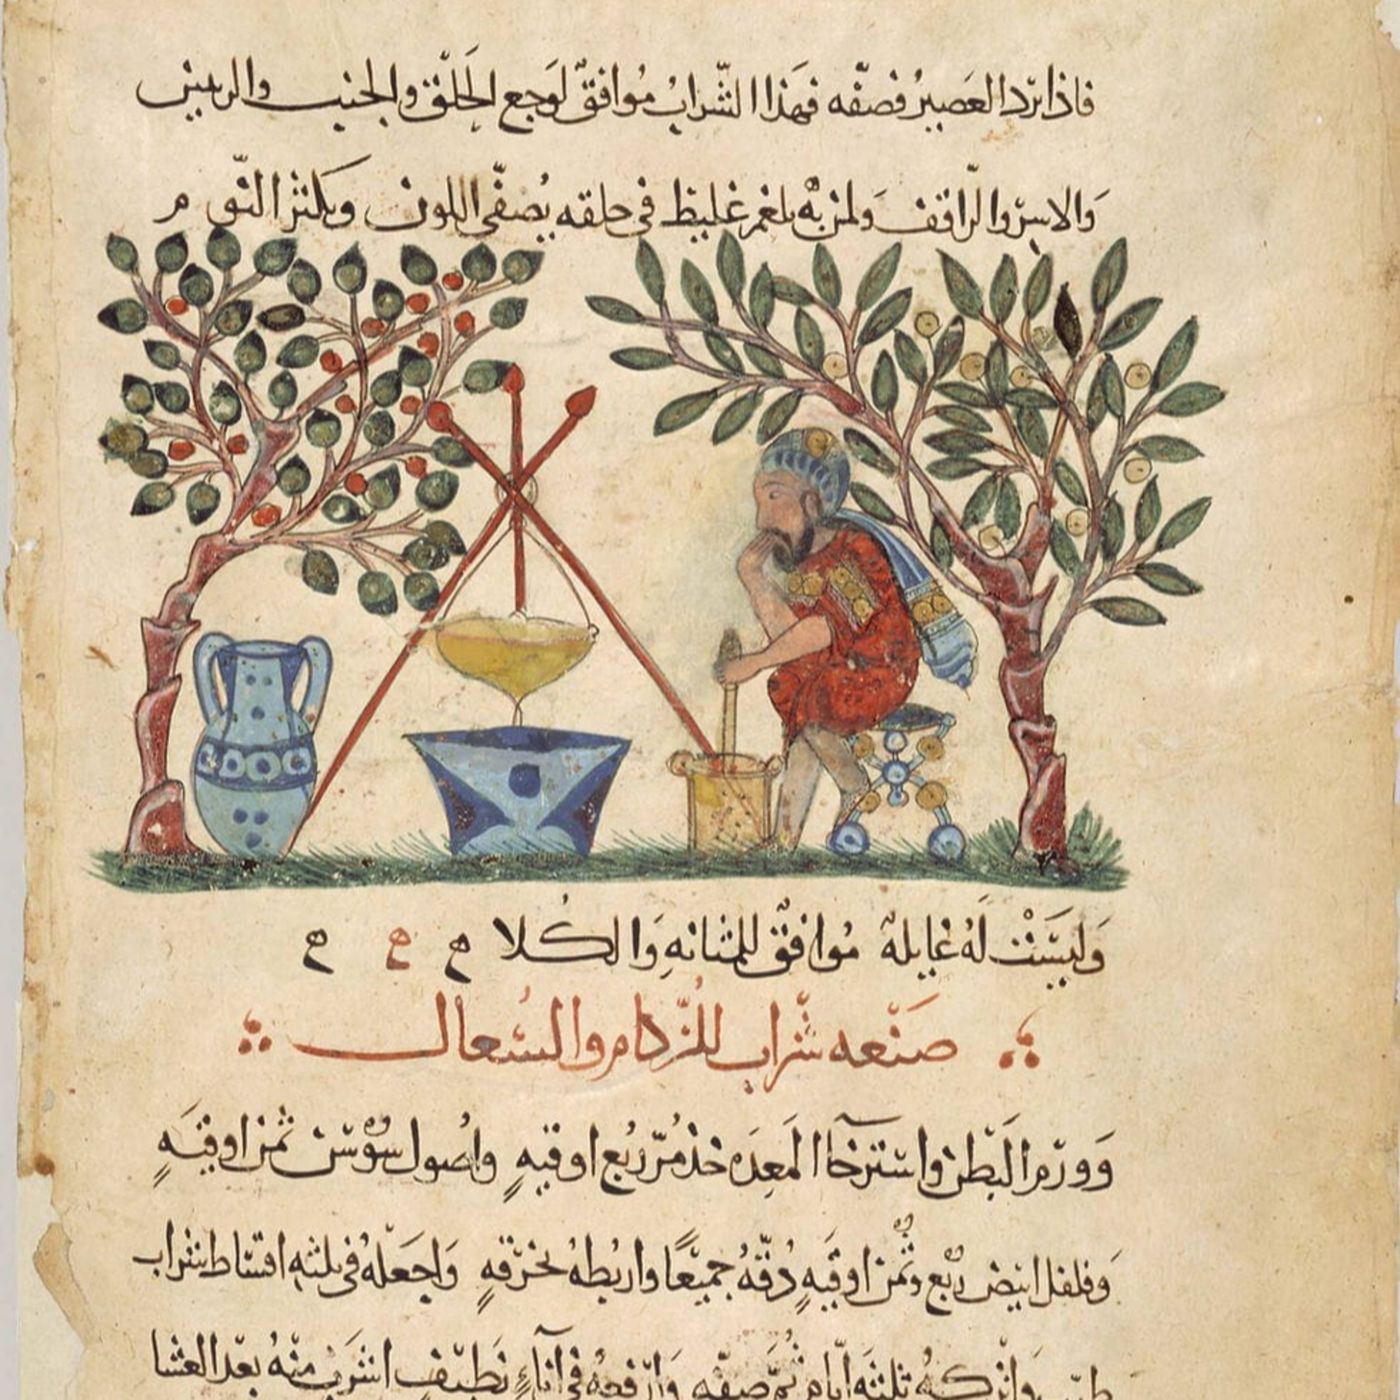 فاذا برد العصير فصفّه فهذا الشّرابُ مُوافقٌ لوَجع الحَلق والجنبين والرئتين
وَلمن به بلغم غليظ فى حلقه يُصفّى اللون ويكثر النّوم
وَليسَتْ لَهُ غايلهٌ مُوافقٌ للمثانهِ وَالكُلا ح ح ح
صَنْعه شَراب للزُكام والسُعال
وَورَم البَطن واسترخآ المَعِدَه خذ مُرّ رُبع اوقيهٍ واصُول سُوْسن ثمن اوقيَهٍ
وَفلفل ابيض ربع وثُمن اوقيَهٍ دُقّهُ جميعًا واربُطهُ بخرقهٍ وَاجعَلهُ فى ثلثهِ اقسَاط شراب
طيّب وَاتركهُ ثلثَه ايّام ثُمّ صفّه وَارفعهُ فى آناءٍ نَظيف اشرَبْ منهُ بعد العشا